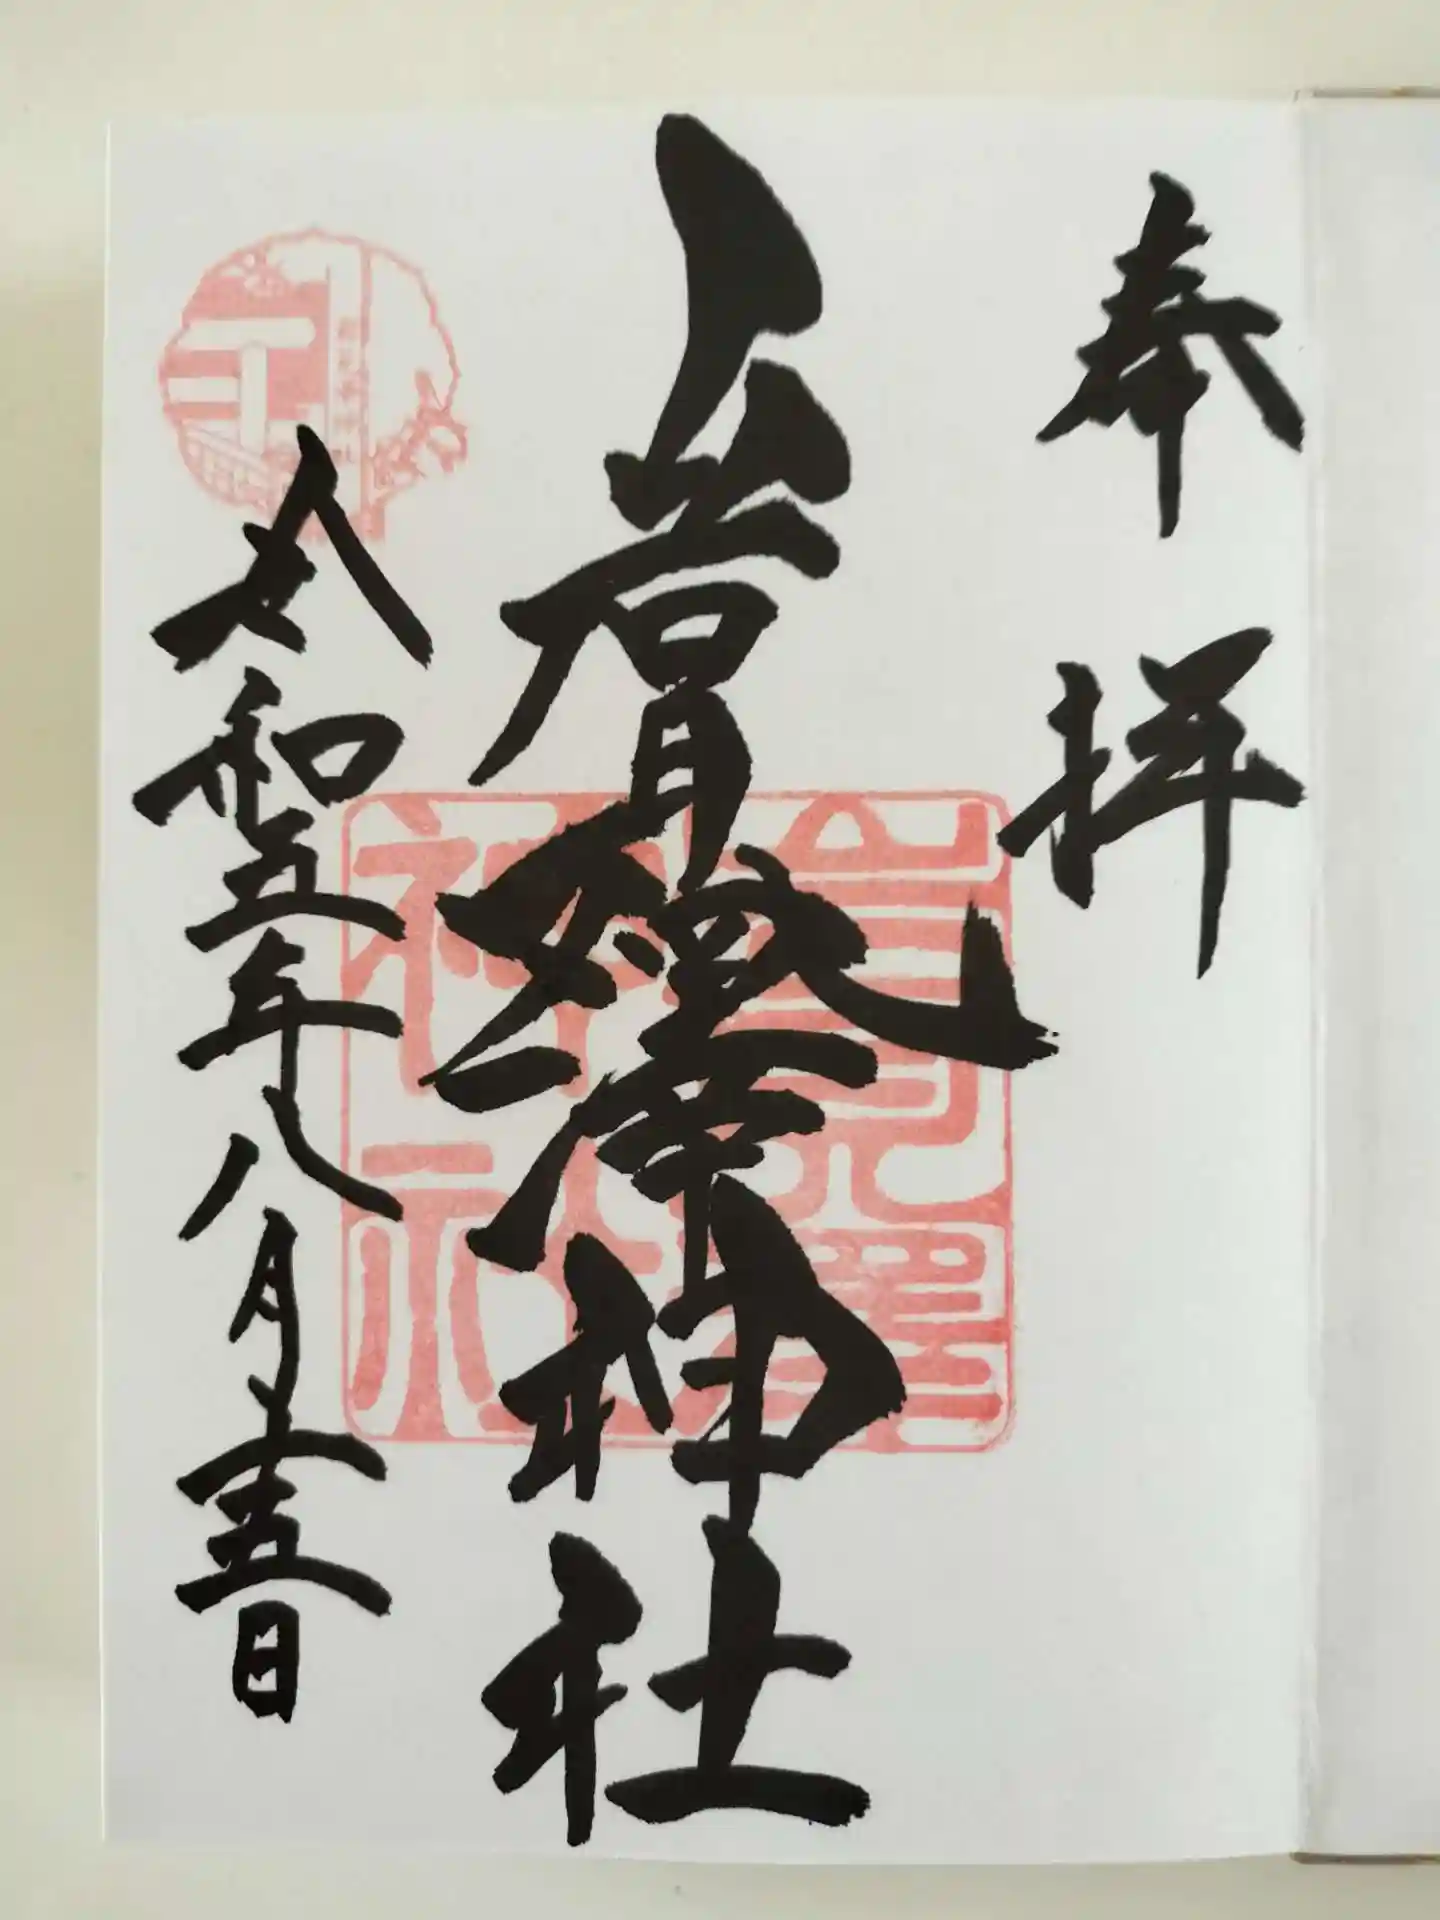 奉拝
岩見澤神社
令和五年八月十五日